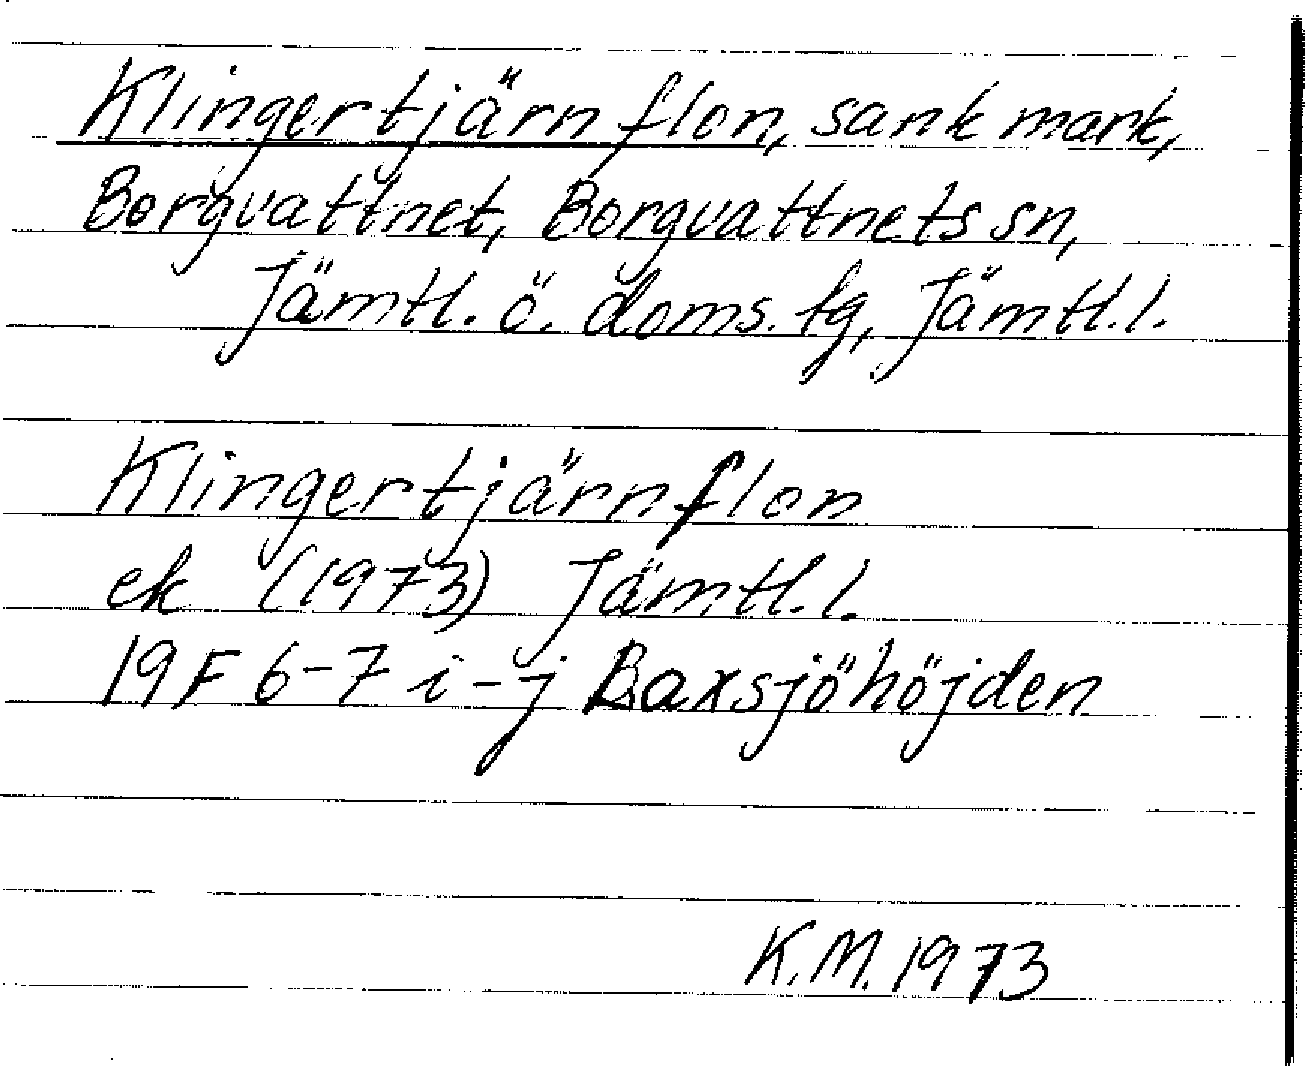 Klingertjärnflon, sank mark,
Borgvattnet, Borgvattnets sn,
Jämtl. ö. doms. tg, Jämtl. l.
Klingertjärnflon
ek (1973) Jämtl. l.
19 F 6-7 i-j Baxsjöhöjden
K.M. 1973